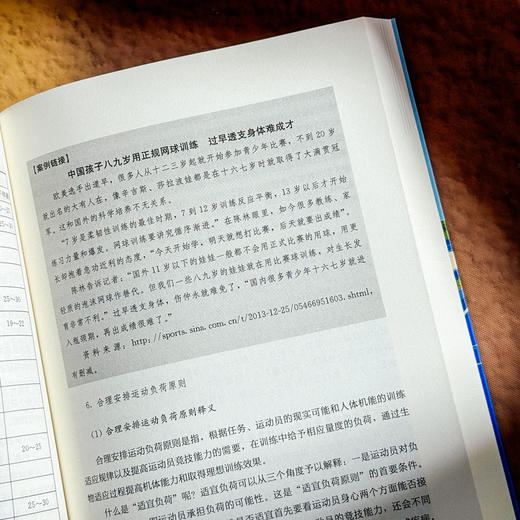 【案例链接】
中国孩子八九岁用正规网球训练 过早透支身体难成才
欧美选手出道早，很多人从十二三岁起就开始参加青少年比赛，不到20岁
就出名的大有人在，像辛吉斯、莎拉波娃都是在十六七岁时就取得了大满贯冠
军，这和国外的科学培养不无关系。
“7岁是柔韧性训练的最佳时期，7到12岁训练反应平衡，13岁以后才开始
练习力量和爆发。网球训练要讲究循序渐进。”在陈林眼里，如今很多教练、家
长却抱着急功近利的态度，“今天开始学，明天就想打比赛，后天就要出成绩”。
陈林告诉记者：“国外11岁以下的娃娃一般都不会用正式比赛的用球，用更
轻质的泡沫网球作替代。但我们一些八九岁的娃娃就在用比赛球训练，对生长发
育非常不利。”过早透支身体，伤仲永就难免了，“国内很多青少年十六七岁就进
入瓶颈期，再出成绩很难了。”
资料来源：http://sports.sina.com.cn/t/2013-12-25/05466951603.shtml，
有删减。
6. 合理安排运动负荷原则
(1) 合理安排运动负荷原则释义
合理安排运动负荷原则是指，根据任务、运动员的现实可能和人体机能的训练
适应规律以及提高运动员竞技能力的需要，在训练中给予相应量度的负荷，通过生
物适应过程提高机体能力和取得理想训练效果。
什么是“适宜负荷”呢？适宜负荷可以从三个角度予以解释：一是运动员对负
运动员承担负荷的可能性。这是“适宜负荷原则”的首要条件。
是否适宜首先要看运动员身心两个方面能否接
员的竞技能力，还会不同
25~30
19~22
20~21
25~30